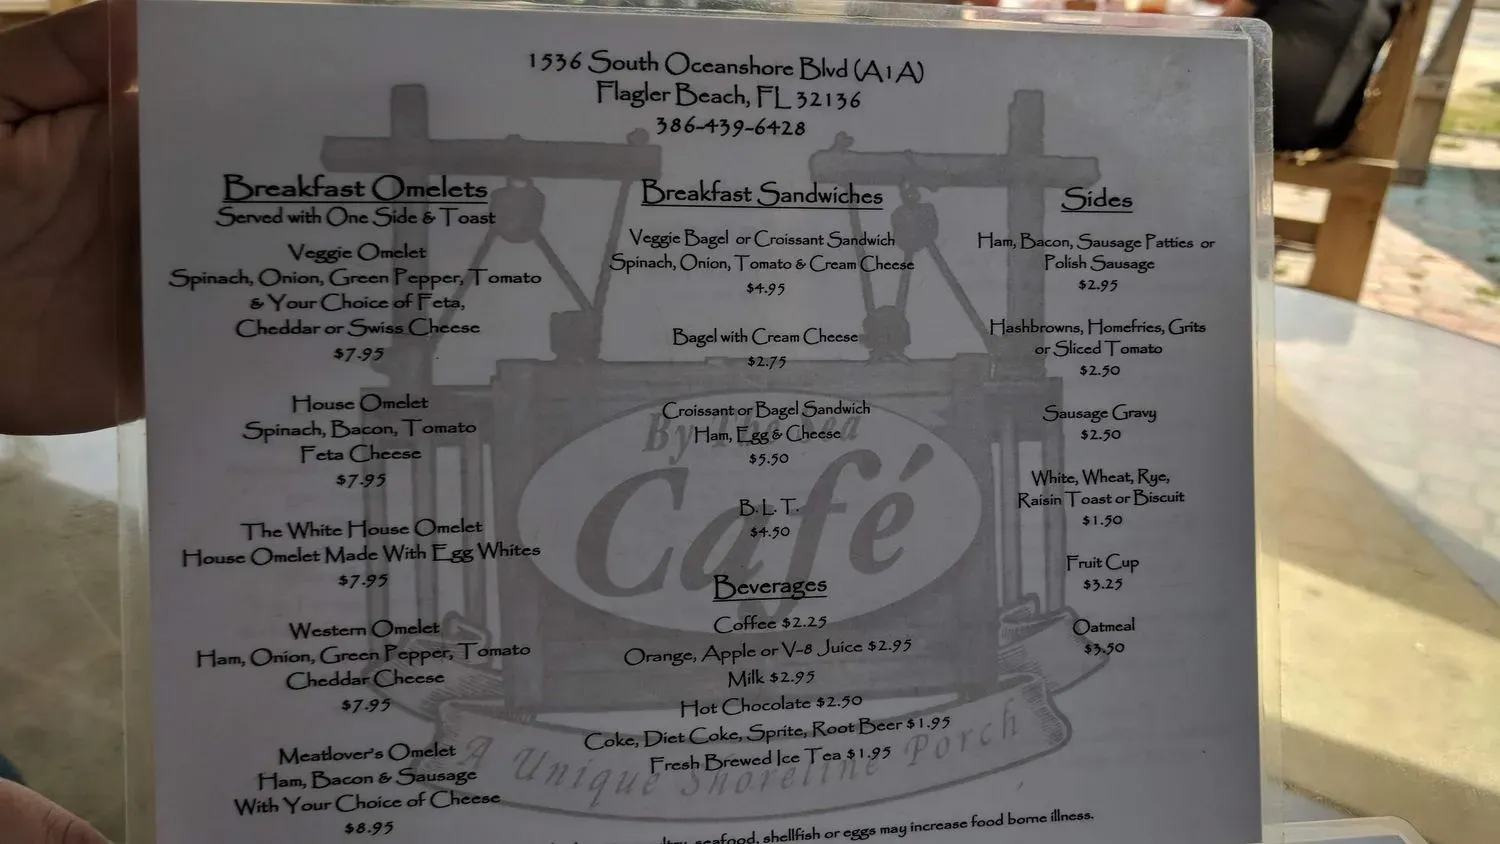 1536 South Oceanshore Blvd (A1A)
Flagler Beach, FL 32136
386-439-6428
Breakfast Omelets
Served with One Side & Toast
Veggie Omelet
Spinach, Onion, Green Pepper, Tomato
& Your Choice of Feta,
Cheddar or Swiss Cheese
$7.95
House Omelet
Spinach, Bacon, Tomato
Feta Cheese
$7.95
The White House Omelet
House Omelet Made With Egg Whites
$7.95
Western Omelet
Ham, Onion, Green Pepper, Tomato
Cheddar Cheese
$7.95
Meatlover's Omelet
Ham, Bacon & Sausage
With Your Choice of Cheese
$8.95
Breakfast Sandwiches
Veggie Bagel or Croissant Sandwich
Spinach, Onion, Tomato & Cream Cheese
$4.95
Bagel with Cream Cheese
$2.75
Croissant or Bagel Sandwich
Ham, Egg & Cheese
$5.50
B.L.T.
$4.50
Beverages
Coffee $2.25
Orange, Apple or V-8 Juice $2.95
Milk $2.95
Hot Chocolate $2.50
Coke, Diet Coke, Sprite, Root Beer $1.95
Fresh Brewed Ice Tea $1.95
Sides
Ham, Bacon, Sausage Patties or
Polish Sausage
$2.95
Hashbrowns, Homefries, Grits
or Sliced Tomato
$2.50
Sausage Gravy
$2.50
White, Wheat, Rye,
Raisin Toast or Biscuit
$1.50
Fruit Cup
$3.25
Oatmeal
$3.50
By The Sea
Café
A Unique Shoreline Porch
seafood, shellfish or eggs may increase food borne illness.